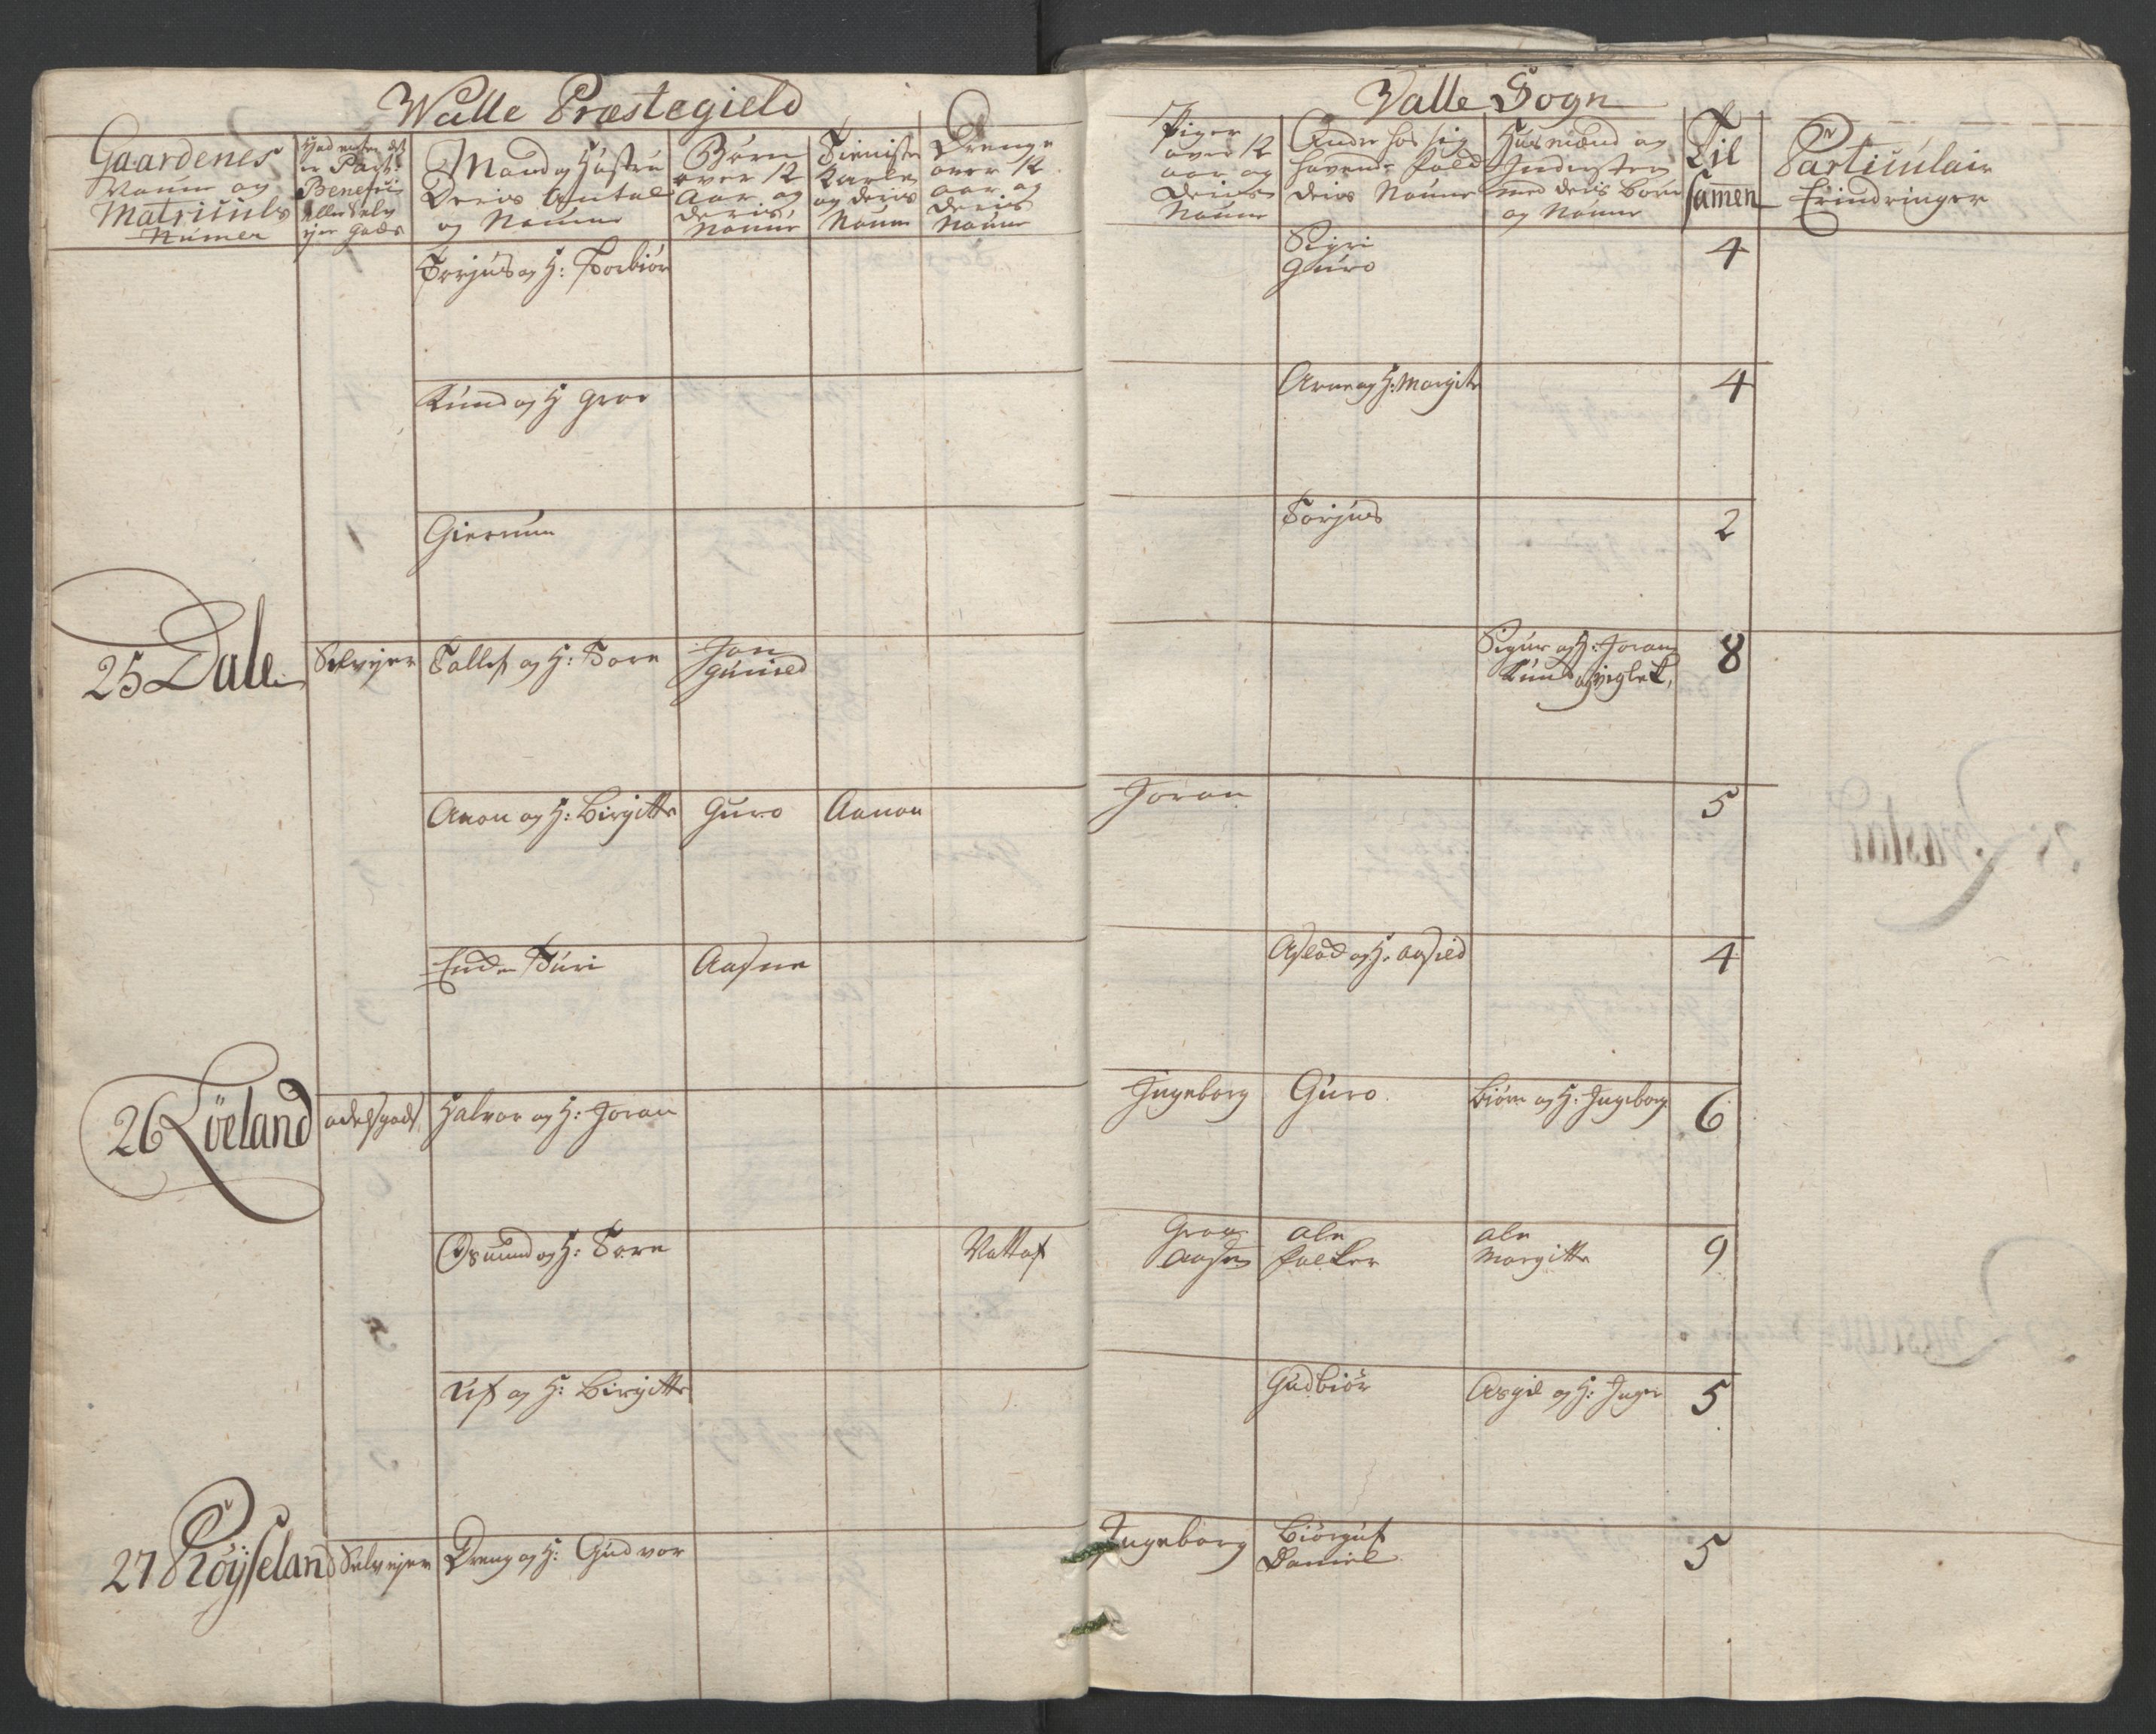 Walle Præstegield
Valle Sogn
Gaardenes Naune og Matriculs Numer
Benefici eller Selv ejer gods
Mand og Hustru Deris Antal og Naune
Børn over 12 Aar og deris Naune
Tieniste Karle og deris Naune
Drenge over 12 aar og deris Naune
Piger over 12 aar og deris Naune
Andre hos sig havende folk deris Naune
Husmænd og Inderster med deris børn og Naune
Til samen
Particulair Erindringer
Torjus og H: Torbiør Sigri 4
Guro
Knud og H Groe Arne og H: Margite 4
Giermun Torjus 2
25 Dale Selvejer Tallef og H: Tore Jon Sigur og H: Joran 8
Gunild Knud og Viglek,
Anon og H: Birgitte Guro Aanon Joran 5
Enke Turi Aasne Aslad og H: Aasild 4
26 Löeland adelsgods Halvor og H: Joran Ingeborg Guro. Biørn og H: Ingeborg 6
Osmund og H: Tore Nottof Groe ale ale 9
Aasne folker Margitte
Uf og H: Birgitte Gudbiør Asgil og H: Inger 5
27 Röyseland Selvejer Dreng og H: Gudvor Ingeborg Biørguf 5
Daniel